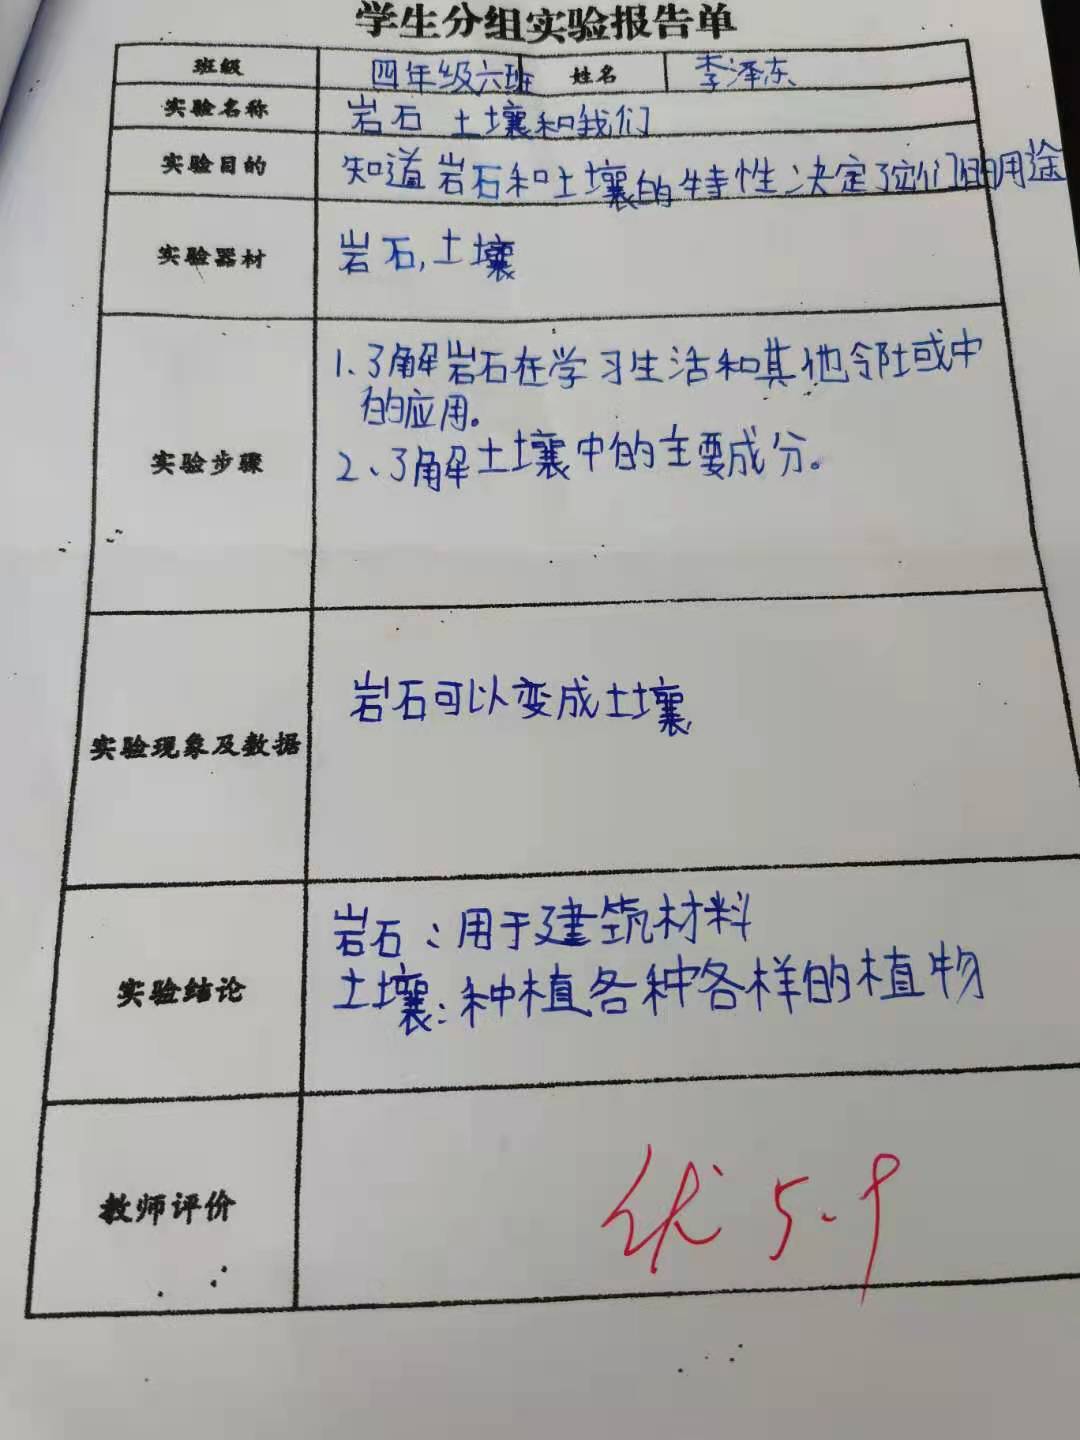 学生分组实验报告单
班级 四年级六班 姓名 李泽东
实验名称 岩石 土壤和我们
实验目的 知道岩石和土壤的特性决定了它们的用途
实验器材 岩石,土壤
1、了解岩石在学习生活和其他邻域中
的应用。
实验步骤 2、了解土壤中的主要成分。
岩石可以变成土壤
实验现象及数据
岩石:用于建筑材料
实验结论 土壤:种植各种各样的植物
教师评价 优 5.9